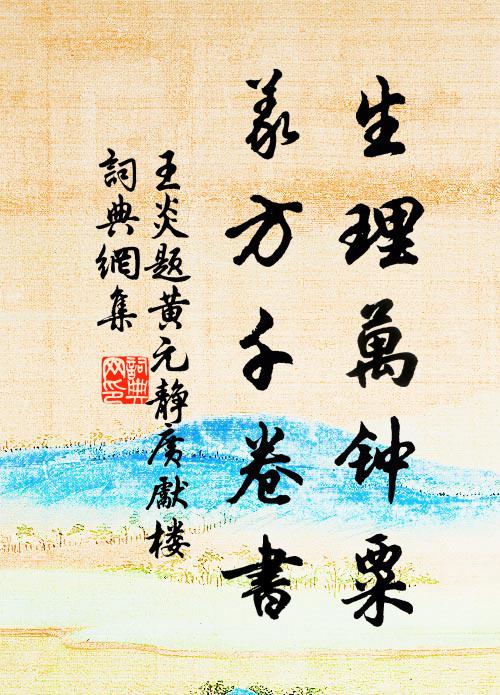 生理萬钟粟
義方千卷書
王炎题黄元静廣獻楼
詞典網集
詞典網印